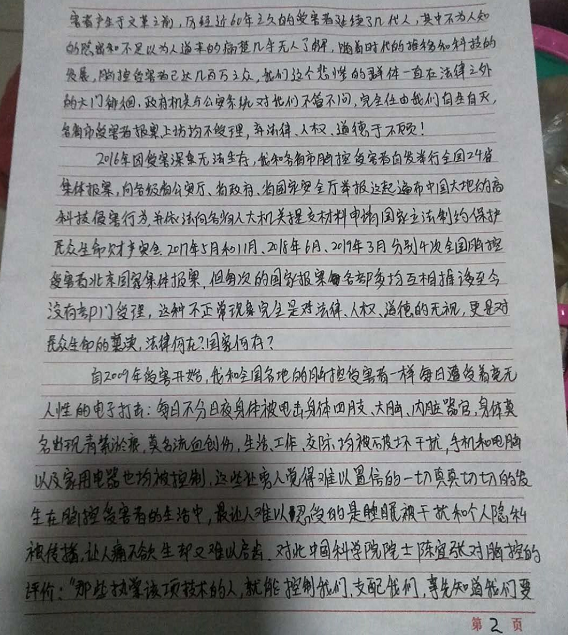 害者产生于文革之前，历经近60年之久的受害者延续了几代人，其中不为人知
的隐密和不足以为人道来的病楚几乎无人了解，随着时代的推移和科技的
发展，脑控受害者已达几百万之众，我们这个悲惨的群体一直在法律之外
的大门徘徊，政府机关与公安系统对我们不管不问，完全任由我们自生自灭，
各省市受害者报案上访均不受理，弃法律、人权、道德于不顾！
2016年因受害深重无法生存，我和各省市脑控受害者自发举行全国24省
集体报案，向各级省公安厅、省政府、省国家安全厅举报这起遍布中国大地的高
科技侵害行为，并依法向各省人大机关提交材料申请国家立法制约保护
民众生命财产安全，2017年5月和11月、2018年6月、2019年3月分别4次全国脑控
受害者北京国家集体报案，但每次的国家报案各部委均互相推诿至今
没有部门受理，这种不正常现象完全是对法律、人权、道德的无视，更是对
民众生命的亵渎，法律何在？国家何在？
自2009年受害开始，我和全国各地的脑控受害者一样每日遭受着毫无
人性的电子打击：每日不分日夜身体被电击身体四肢、大脑、内脏器官，身体莫
名出现青紫淤痕，莫名流血创伤，生活、工作、交际均被破坏干扰，手机和电脑
以及家用电器也均被控制，这些让旁人觉得难以置信的一切真真切切的发
生在脑控受害者的生活中，最让人难以忍受的是睡眠被干扰和个人隐私
被传播，让人痛不欲生却又难以启齿。对此中国科学院院士陈宜张对脑控的
评价：“那些执掌该项技术的人，就能控制我们，支配我们，事先知道我们要
第 2 页